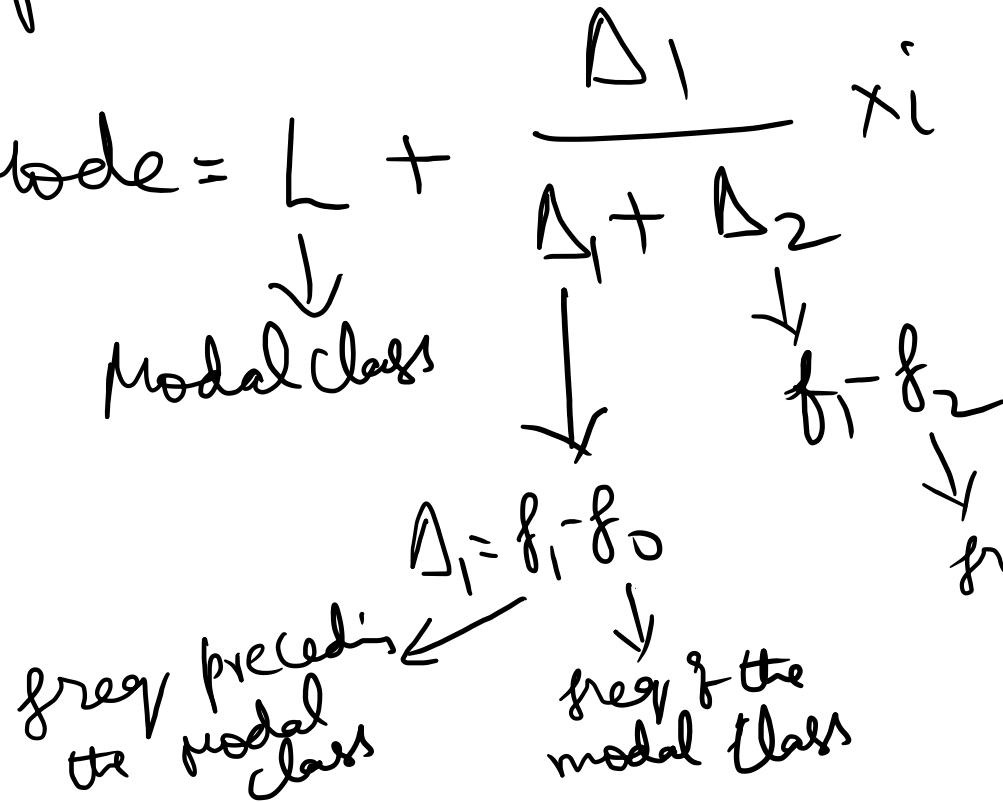 ode = L + Δ1 / Δ1 + Δ2 × i
Modal class
f1 - f2
Δ1 = f1 - f0
fr
freq precedin
the modal
class
freq of the
modal class